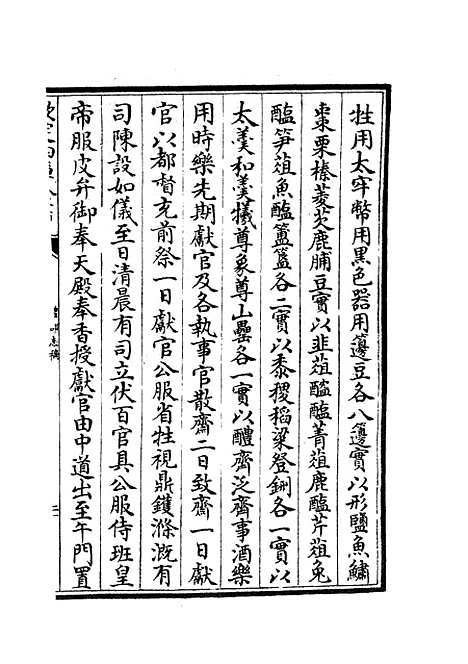 牲用太牢幣用黑色器用籩豆各八籩實以形鹽魚鱐
棗栗榛菱芡鹿脯豆實以韭葅醓醢菁葅鹿醢芹葅兔
醢笋葅魚醢簠簋各二實以黍稷稻粱登鉶各一實以
太羮和羮犧尊象尊山罍各一實以醴齊泛齊事酒樂
用時樂先期獻官及各執事官散齋二日致齋一日獻
官以都督充前祭一日獻官公服省牲視鼎鑊滌溉有
司陳設如儀至日清晨有司立伏百官具公服侍班皇
帝服皮弁御奉天殿奉香授獻官由中道出至午門置